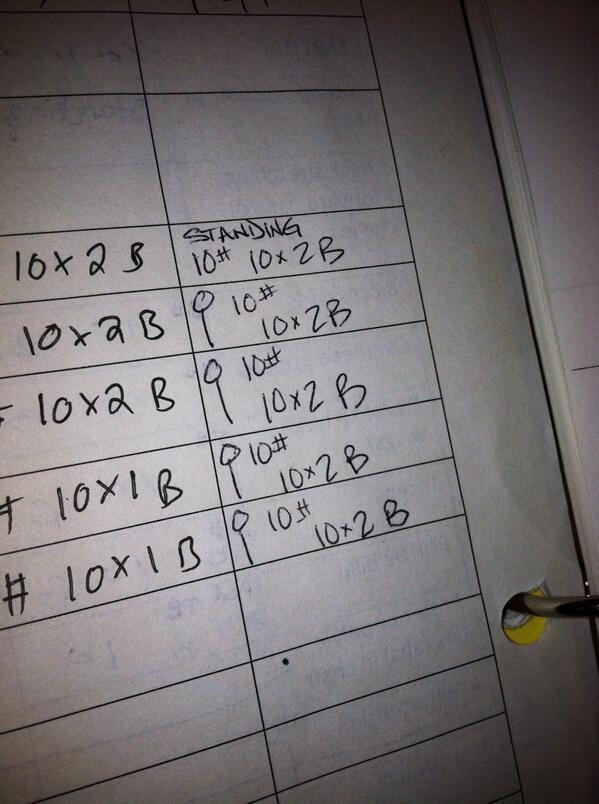 10x2 B
STANDING
10# 10x2B
10x2 B
10#
10x2B
10x2 B
10#
10x2 B
10x1 B
10#
10x2 B
# 10x1 B
10#
10x2 B